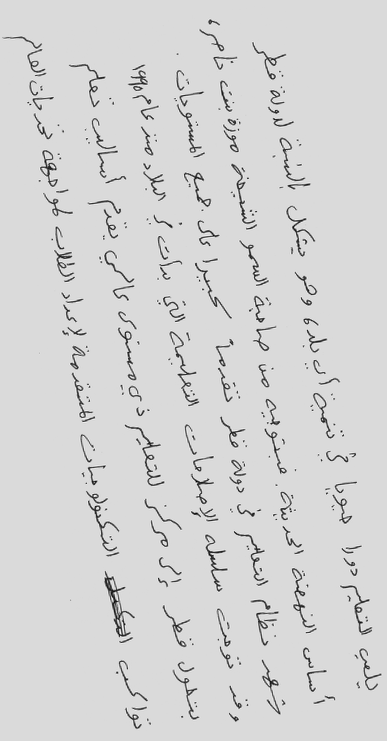 يلعب التعليم دورا حيويا في تنمية أي بلد، وهو يشكل البنية لدولة قطر
أساس النهضة الحديثة. فبتوجيه من صاحبة السمو الشيخة موزة بنت ناصر،
شهد نظام التعليم في دولة قطر تقدما كبيرا على جميع المستويات.
وقد توجت سلسلة الإصلاحات التعليمية التي بدأت في البلاد منذ عام ١٩٩٥
بتحول قطر إلى مركز للتعليم ذي مستوى عالمي يقدم أساليب تعليم
تواكب التكنولوجيات المتقدمة لإعداد الطلاب لمواجهة تحديات العالم